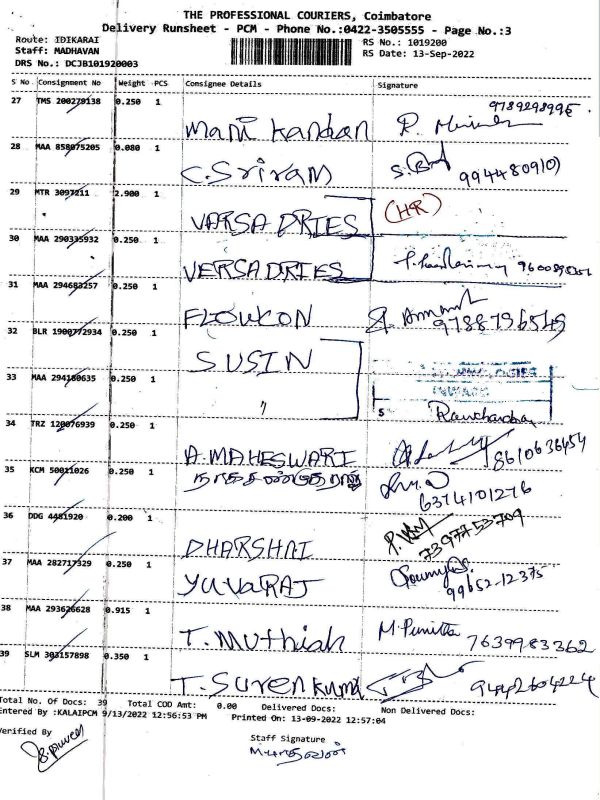 THE PROFESSIONAL COURIERS, Coimbatore
Delivery Runsheet - PCM - Phone No.:0422-3505555 - Page No.:3
Route: IDIKARAI
RS No.: 1019200
Staff: MADHAVAN
RS Date: 13-Sep-2022
DRS No.: DCJB101920003
S No. Consignment No Weight PCS Consignee Details Signature
27 TMS 200279138 0.250 1 Mani Kandan
28 MAA 858075205 0.080 1 C. Sriram
29 MTR 3097211 2.900 1 VARSA DRIES (HR)
30 MAA 290335932 0.250 1 VERSA DRIES
31 MAA 294683257 0.250 1 FLOWCON 9788796549
32 BLR 1900772934 0.250 1 SUSIN
33 MAA 294180635 0.250 1 "
Ramchandran
34 TRZ 120076939 0.250 1 A. MAHESWARI 8610636454
35 KCM 50011026 0.250 1 6374101276
36 DDG 4481920 0.200 1 DHARSHNI 7397753709
37 MAA 282717329 0.250 1 YUVARAJ 99652-12375
38 MAA 293626628 0.915 1 T. Muthiah M. Punitha 7639983362
39 SLM 303157898 0.350 1 T. Suren kumar 9442604224
Total No. Of Docs: 39 Total COD Amt: 0.00 Delivered Docs: Non Delivered Docs:
Entered By :KALAIPCM 9/13/2022 12:56:53 PM Printed On: 13-09-2022 12:57:04
Verified By
Staff Signature